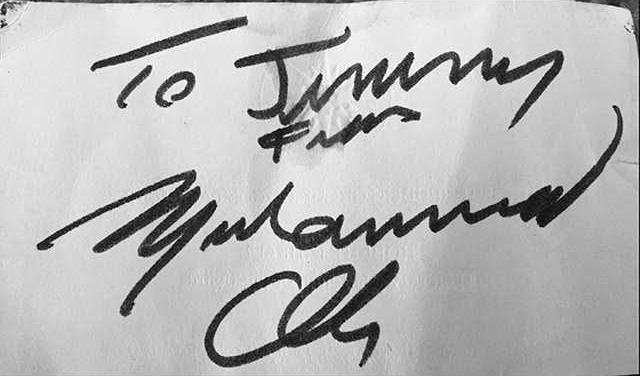 To Jimmy
From
Muhammad
Ali